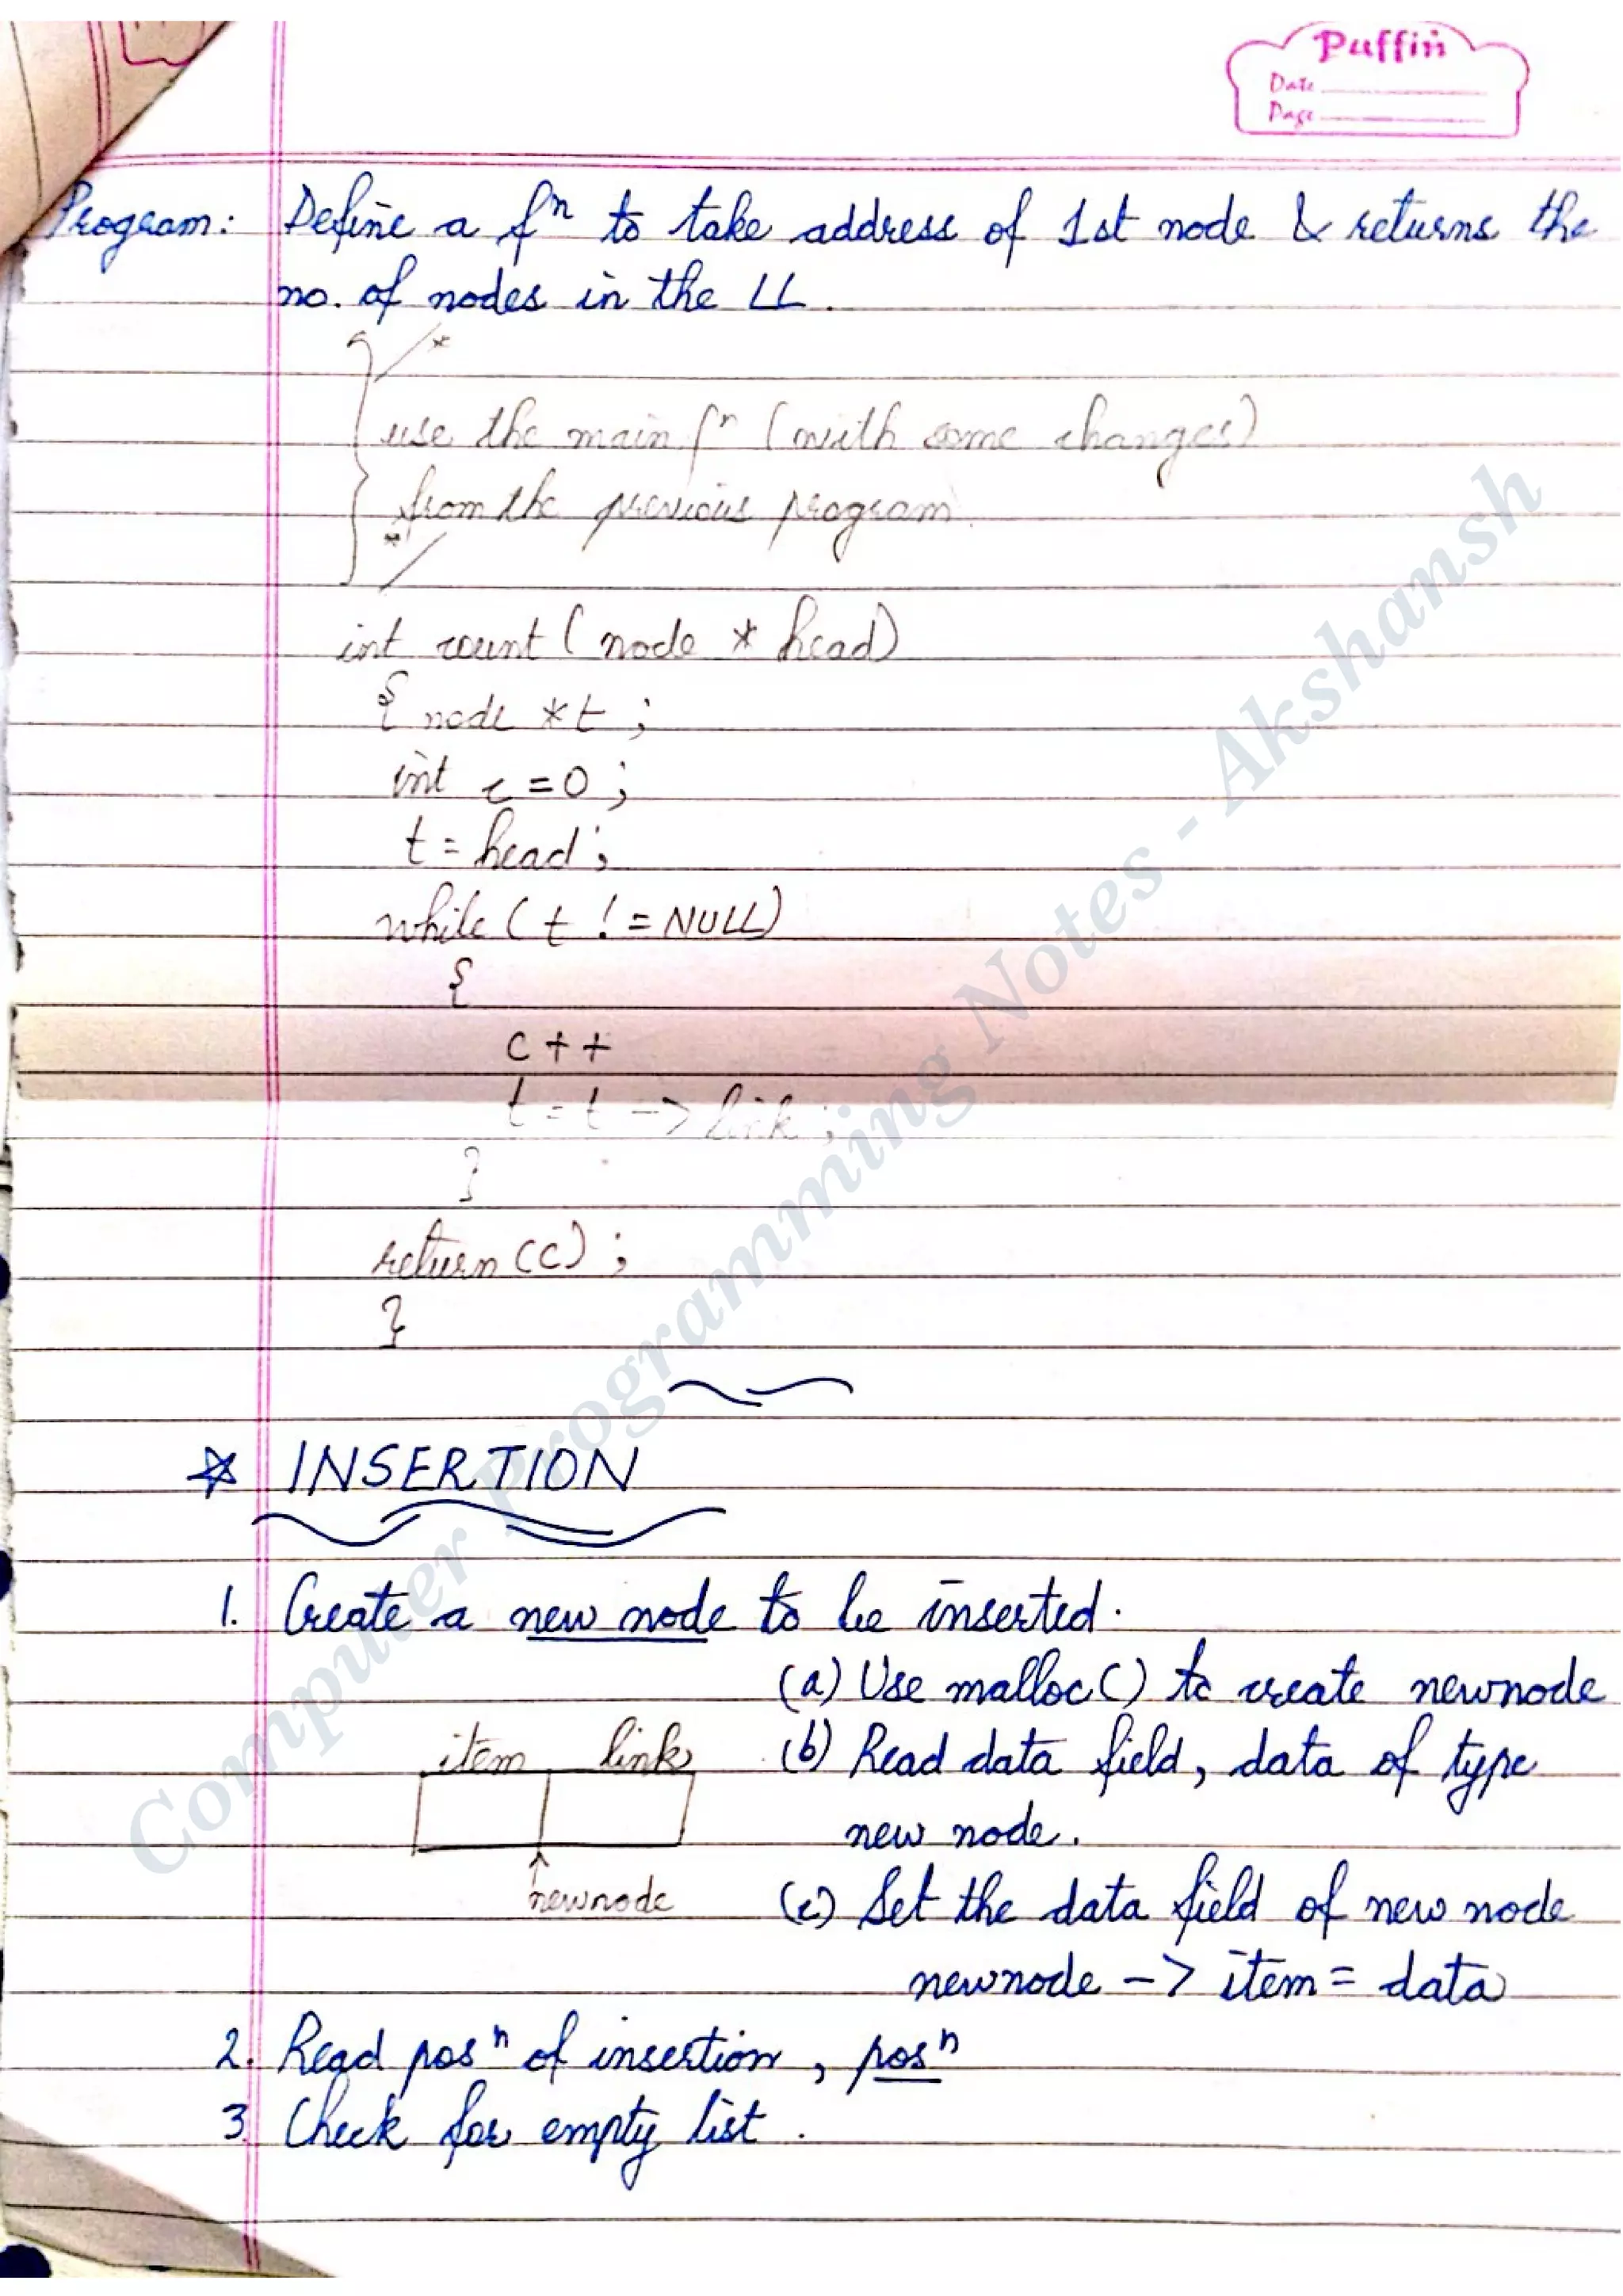 Puffin
Date
Page
Program: Define a fⁿ to take address of 1st node & returns the
no. of nodes in the LL.
/*
use the main fⁿ (with some changes)
from the previous program
*/
int count ( node * head)
{ node *t ;
int c = 0 ;
t = head ;
while ( t != NULL)
{
c++
t = t -> link ;
}
return (c) ;
}
* INSERTION
1. Create a new node to be inserted.
(a) Use malloc() to create newnode
item link
(b) Read data field, data of type
new node.
newnode
(c) Set the data field of new node
newnode -> item = data
2. Read posⁿ of insertion, posⁿ
3 Check for empty list .
Computer Programming Notes - Akshansh